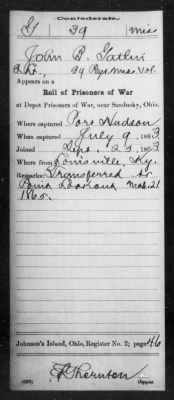 Confederate.
G 39 Miss
John B. Gatlin
2 Lt., 39 Reg. Miss. Vol.
Appears on a
Roll of Prisoners of War
at Depot Prisoners of War, near Sandusky, Ohio.
Where captured Port Hudson
When captured July 9, 1863
Joined Sept. 25, 1863
Where from Louisville, Ky.
Remarks: Transferred to
Point Lookout Mch. 21
1865.
Johnson's Island, Ohio, Register No. 2; page 46
Thornton
Copyist.